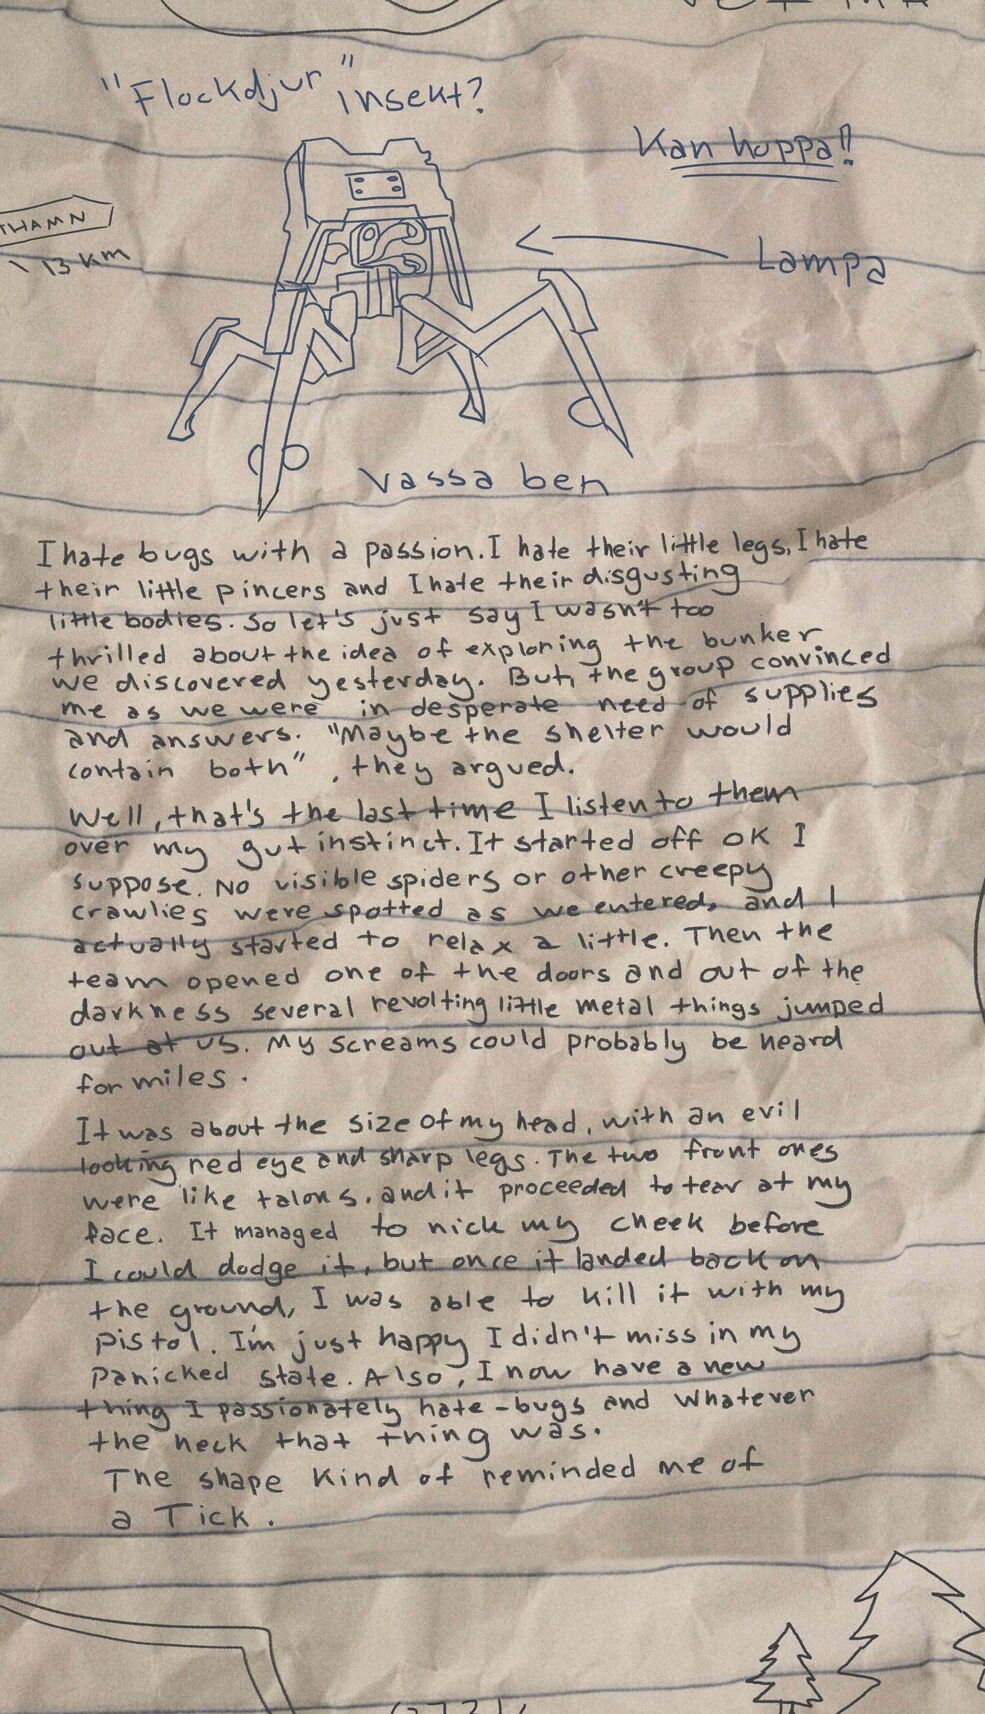 "Flockdjur" insekt?
Kan hoppa!!
THAMN
13 km
Lampa
Vassa ben
I hate bugs with a passion. I hate their little legs, I hate
their little pincers and I hate their disgusting
little bodies. So let's just say I wasn't too
thrilled about the idea of exploring the bunker
we discovered yesterday. But, the group convinced
me as we were in desperate need of supplies
and answers. "Maybe the shelter would
contain both", they argued.
Well, that's the last time I listen to them
over my gut instinct. It started off ok I
suppose. No visible spiders or other creepy
crawlies were spotted as we entered, and I
actually started to relax a little. Then the
team opened one of the doors and out of the
darkness several revolting little metal things jumped
out at us. My screams could probably be heard
for miles.
It was about the size of my head, with an evil
looking red eye and sharp legs. The two front ones
were like talons, and it proceeded to tear at my
face. It managed to nick my cheek before
I could dodge it, but once it landed back on
the ground, I was able to kill it with my
pistol. I'm just happy I didn't miss in my
panicked state. Also, I now have a new
thing I passionately hate - bugs and whatever
the heck that thing was.
The shape kind of reminded me of
a Tick.